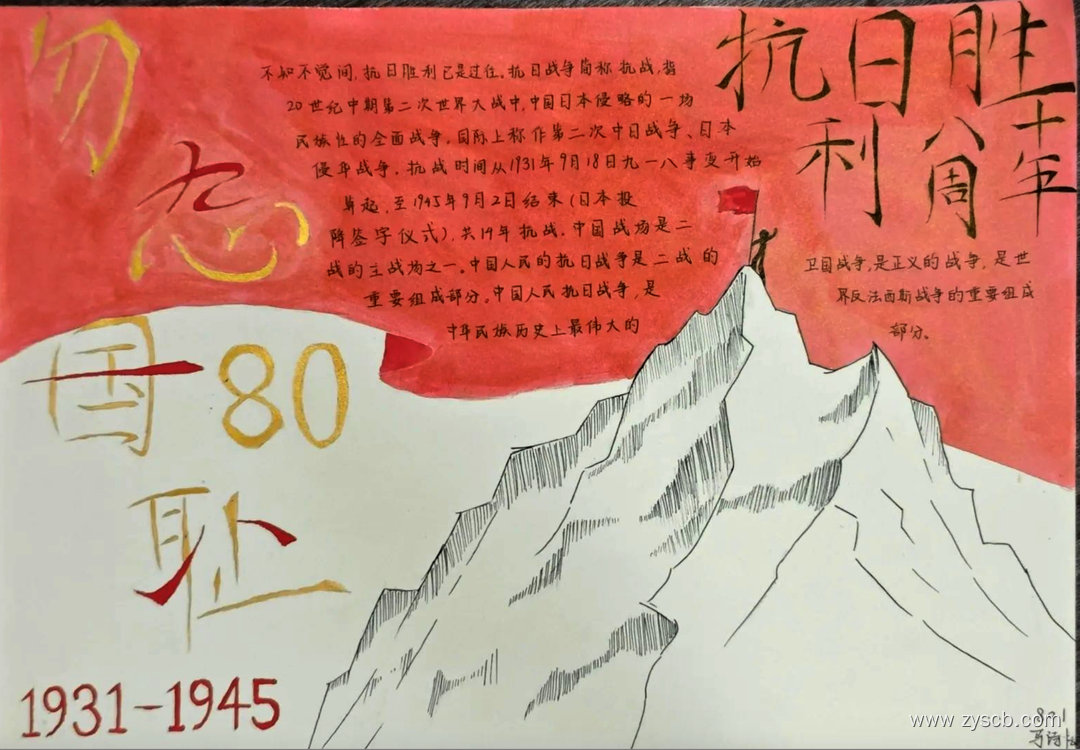 勿忘
国耻
80
1931-1945
抗日胜
利八十
周年
不知不觉间,抗日胜利已是过往。抗日战争简称抗战,指
20世纪中期第二次世界大战中,中国日本侵略的一场
民族性的全面战争。国际上称作第二次中日战争、日本
侵华战争。抗战时间从1931年9月18日九一八事变开始
算起,至1945年9月2日结束(日本投
降签字仪式),共14年抗战。中国战场是二
战的主战场之一。中国人民的抗日战争是二战的
重要组成部分。中国人民抗日战争,是
中华民族历史上最伟大的
卫国战争,是正义的战争,是世
界反法西斯战争的重要组成
部分。
www.zyscb.com